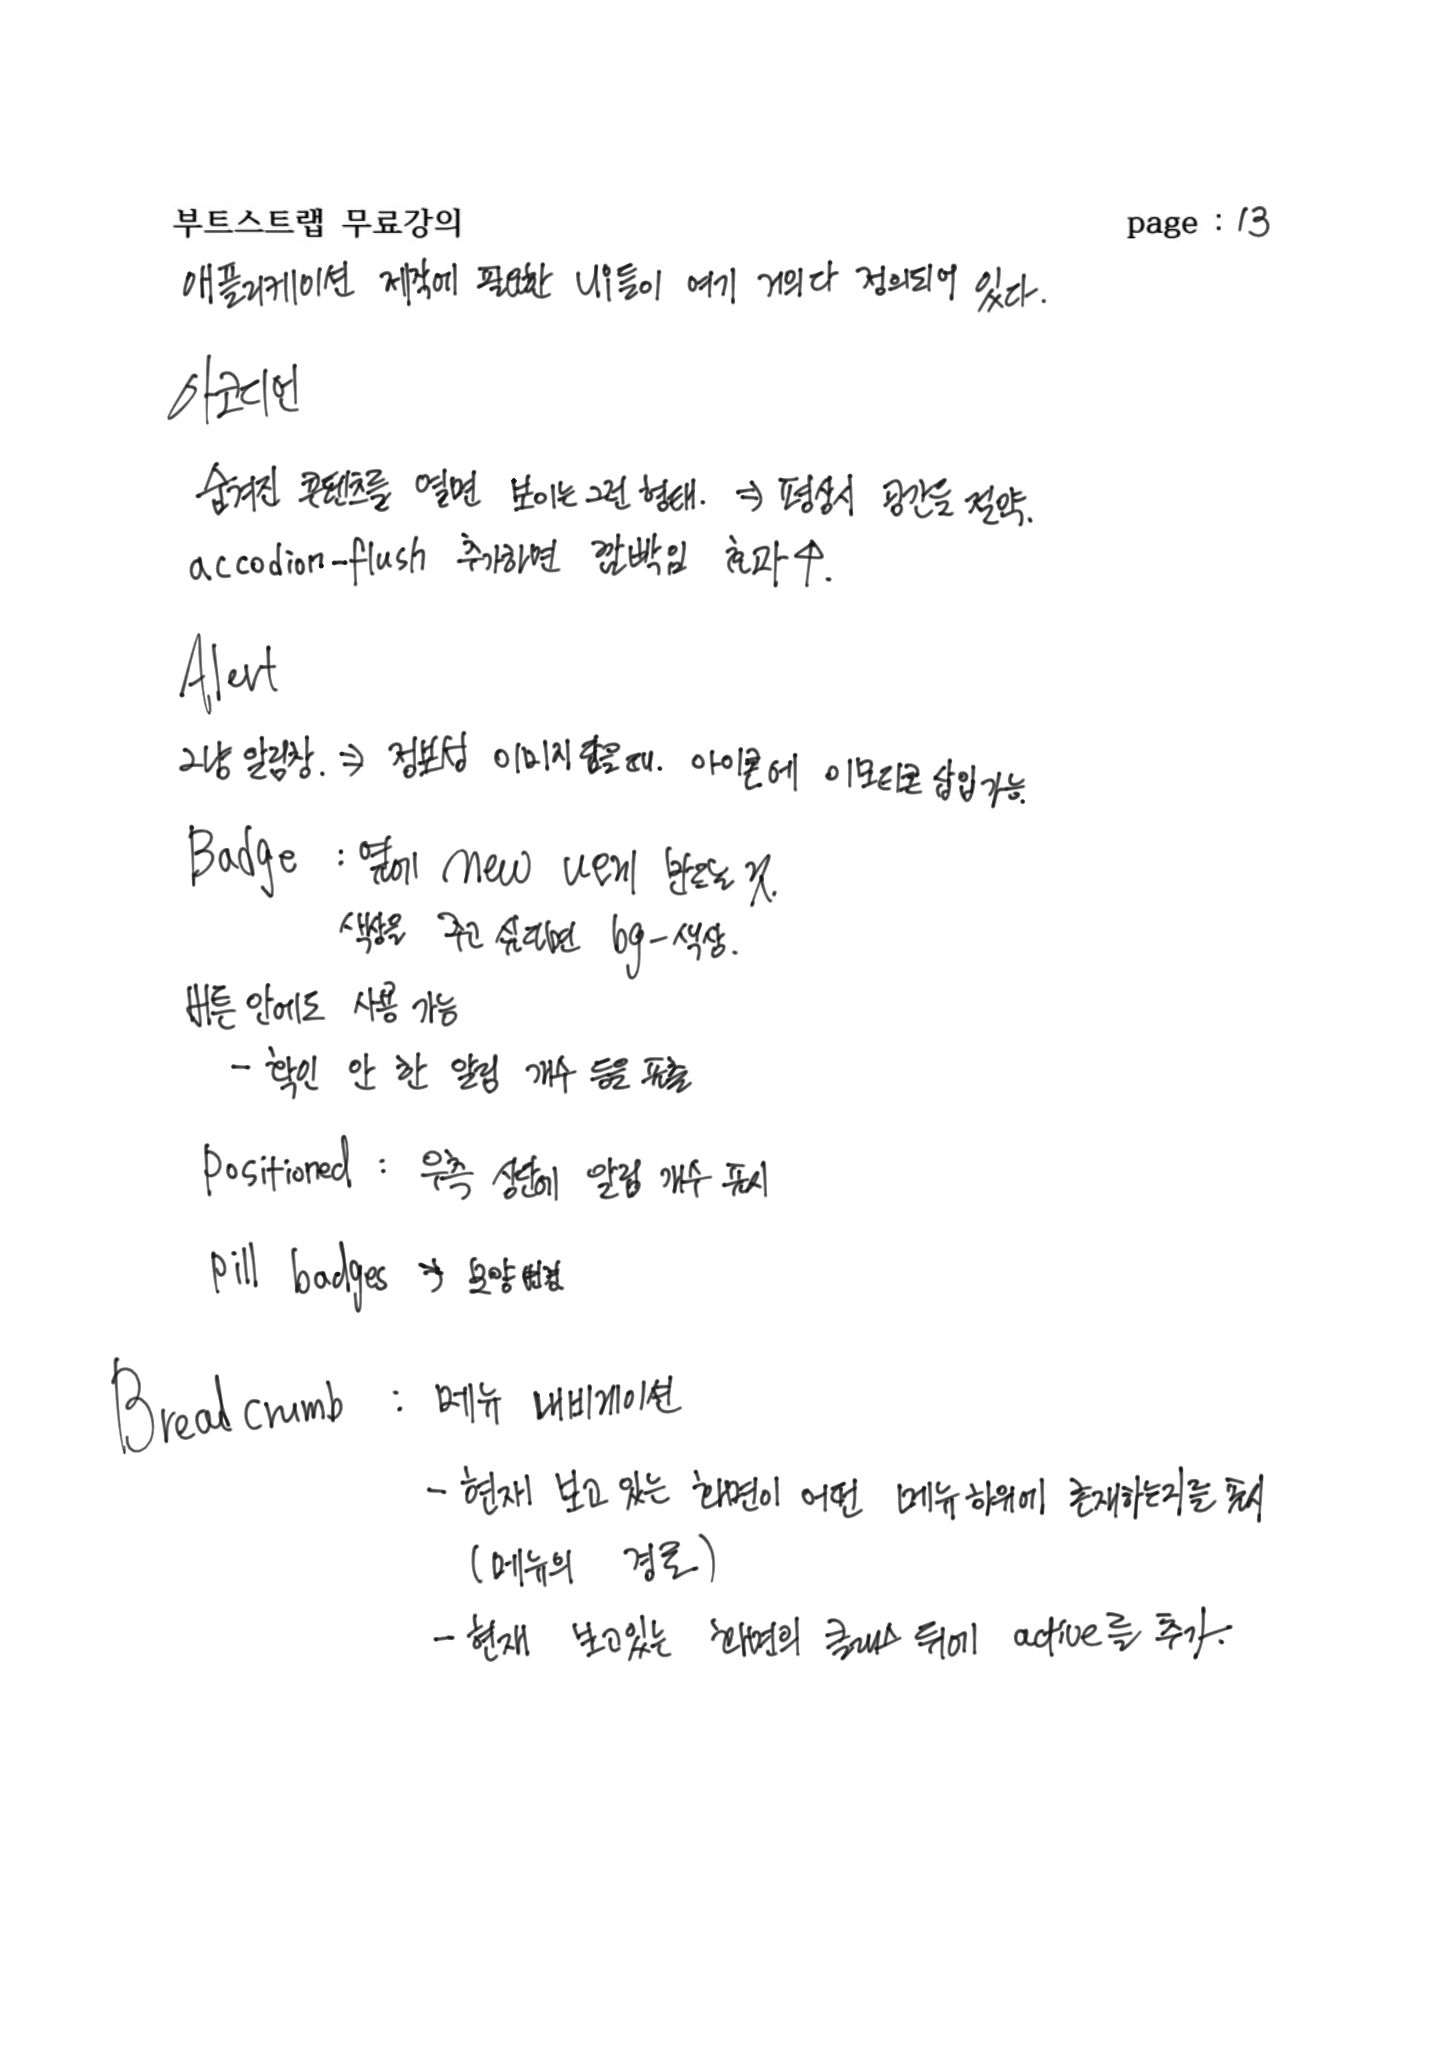 부트스트랩 무료강의 page : 13
애플리케이션 제작에 필요한 UI들이 여기 거의다 정의되어 있다.
아코디언
숨겨진 콘텐츠를 열면 보이는 그런 형태. ⇒ 평상시 공간을 절약.
accodion-flush 추가하면 깜빡임 효과↑.
Alert
그냥 알림창. ⇒ 정보성 이미지 담을때. 아이콘에 이모티콘 삽입가능.
Badge : 옆에 new 뜨게 만드는 것.
색상을 주고 싶다면 bg-색상.
버튼 안에도 사용 가능
- 확인 안 한 알림 개수 등을 표출
positioned : 우측 상단에 알림 개수 표시
pill badges → 모양 변경
Breadcrumb : 메뉴 내비게이션
- 현재 보고 있는 화면이 어떤 메뉴 하위에 존재하는지를 표시
(메뉴의 경로)
- 현재 보고있는 화면의 클래스 뒤에 active를 추가.